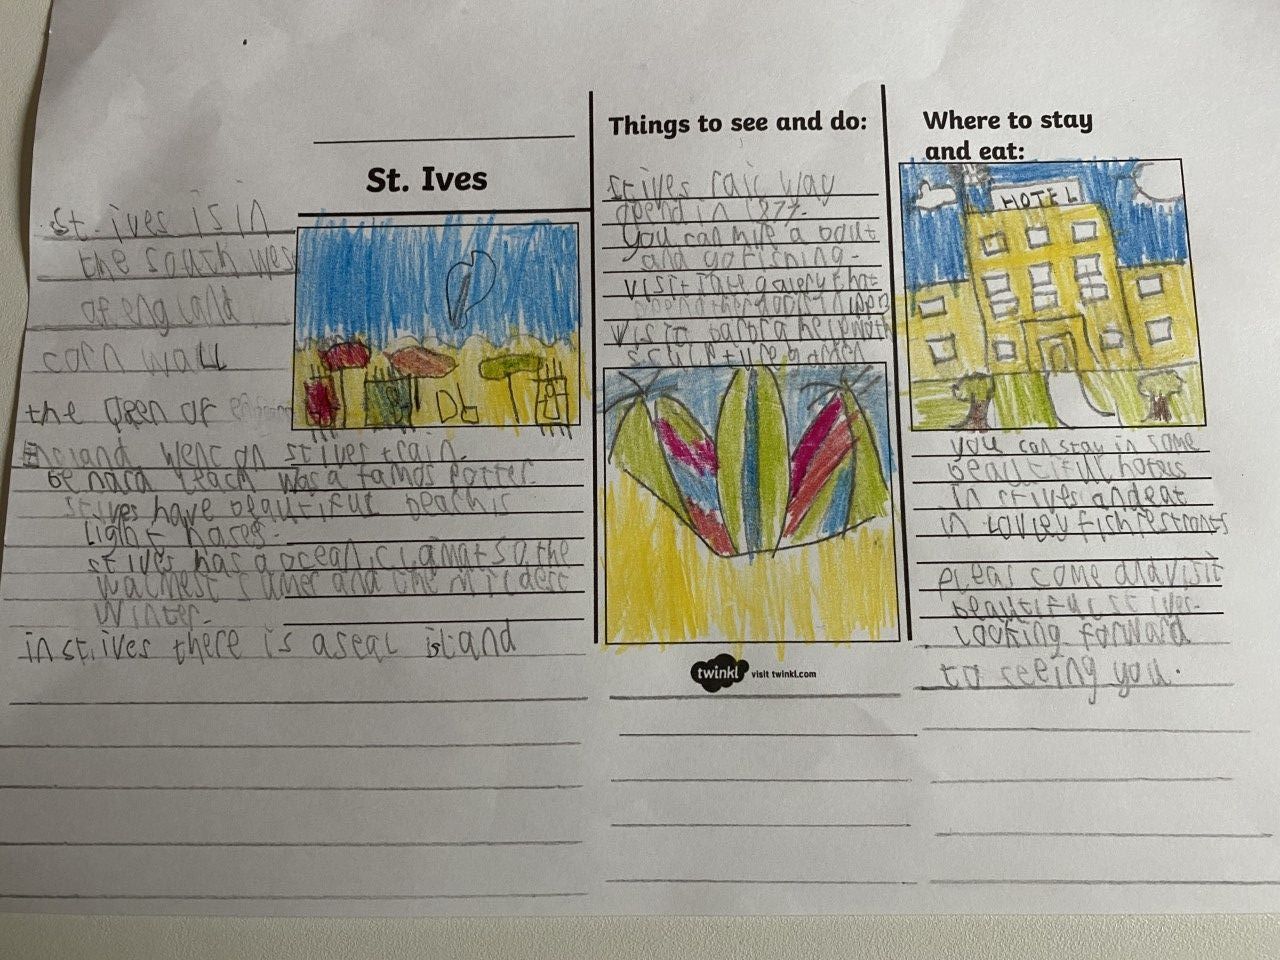 St. Ives
st. ives is in
the south wes
of england
corn wall
the Qeen of
England went on st ives train.
be nard leach was a famos potter
st ives have beautiful beach is
Light hases.
st ives has a ocean climat so the
walmest sumer and the mildest
Winter.
in st. ives there is a seal island
Things to see and do:
st ives rail way
opend in 1877.
you can hire a bout
and go fishing.
visit tate galery that
visit barbra hepwoth
sculptiure garden
twinkl visit twinkl.com
Where to stay
and eat:
HOTEL
you can stay in some
beautiful hotels
in st ives and eat
in lovley fish restronts
pleas come and visit
beautiful st ives.
looking forward
to seeing you.